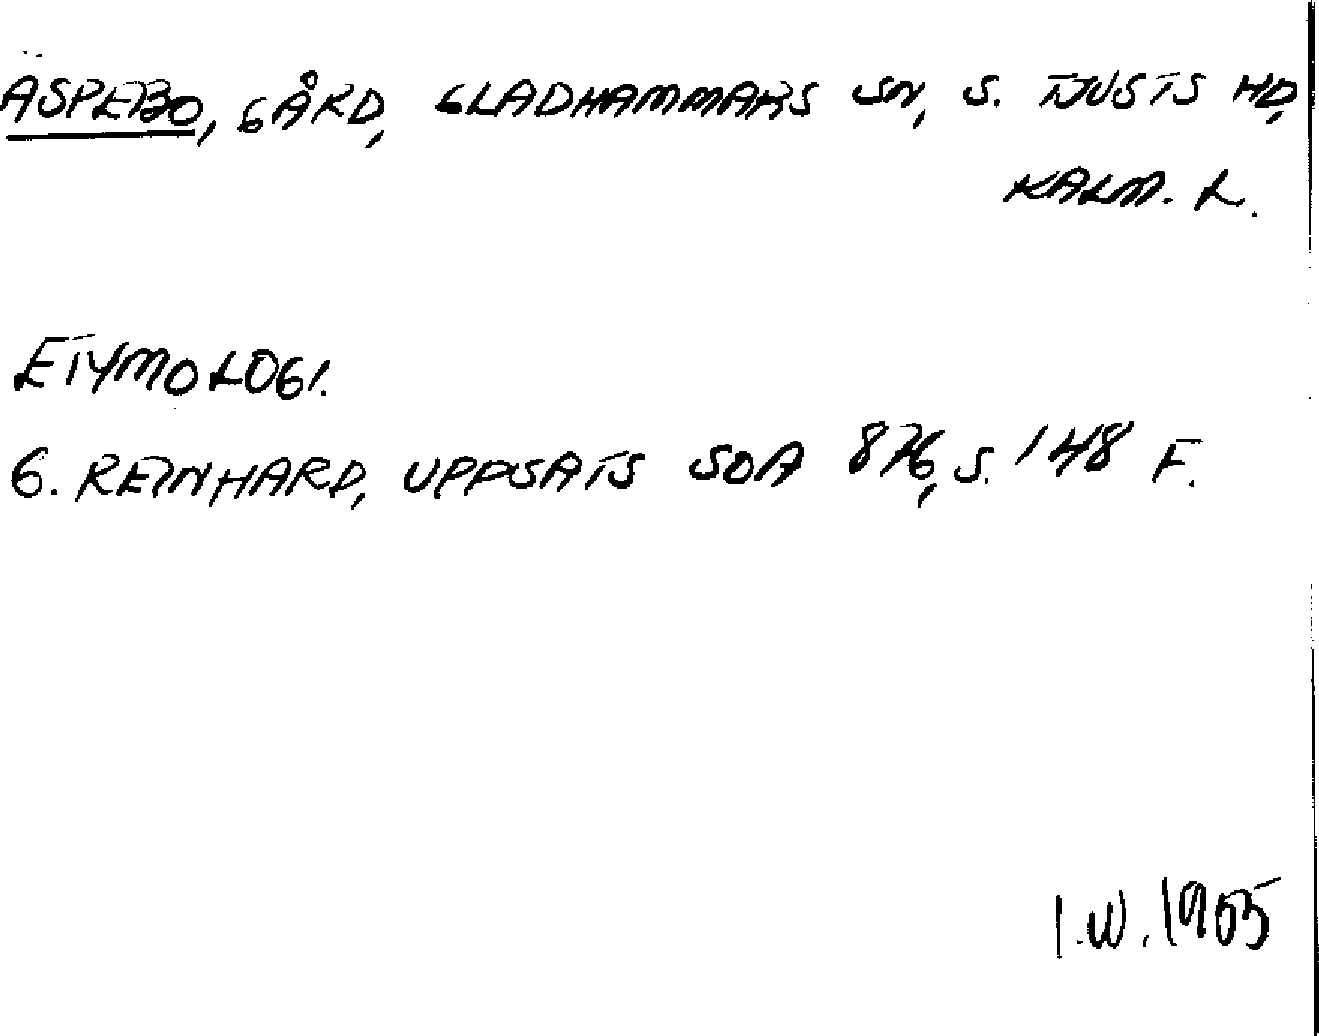 ÄSPEBO, GÅRD, GLADHAMMARS SN, S. TJUSTS HD,
KALM. L.
ETYMOLOGI.
G. REINHARD, UPPSATS SOA 876, S. 148 F.
I.W. 1985